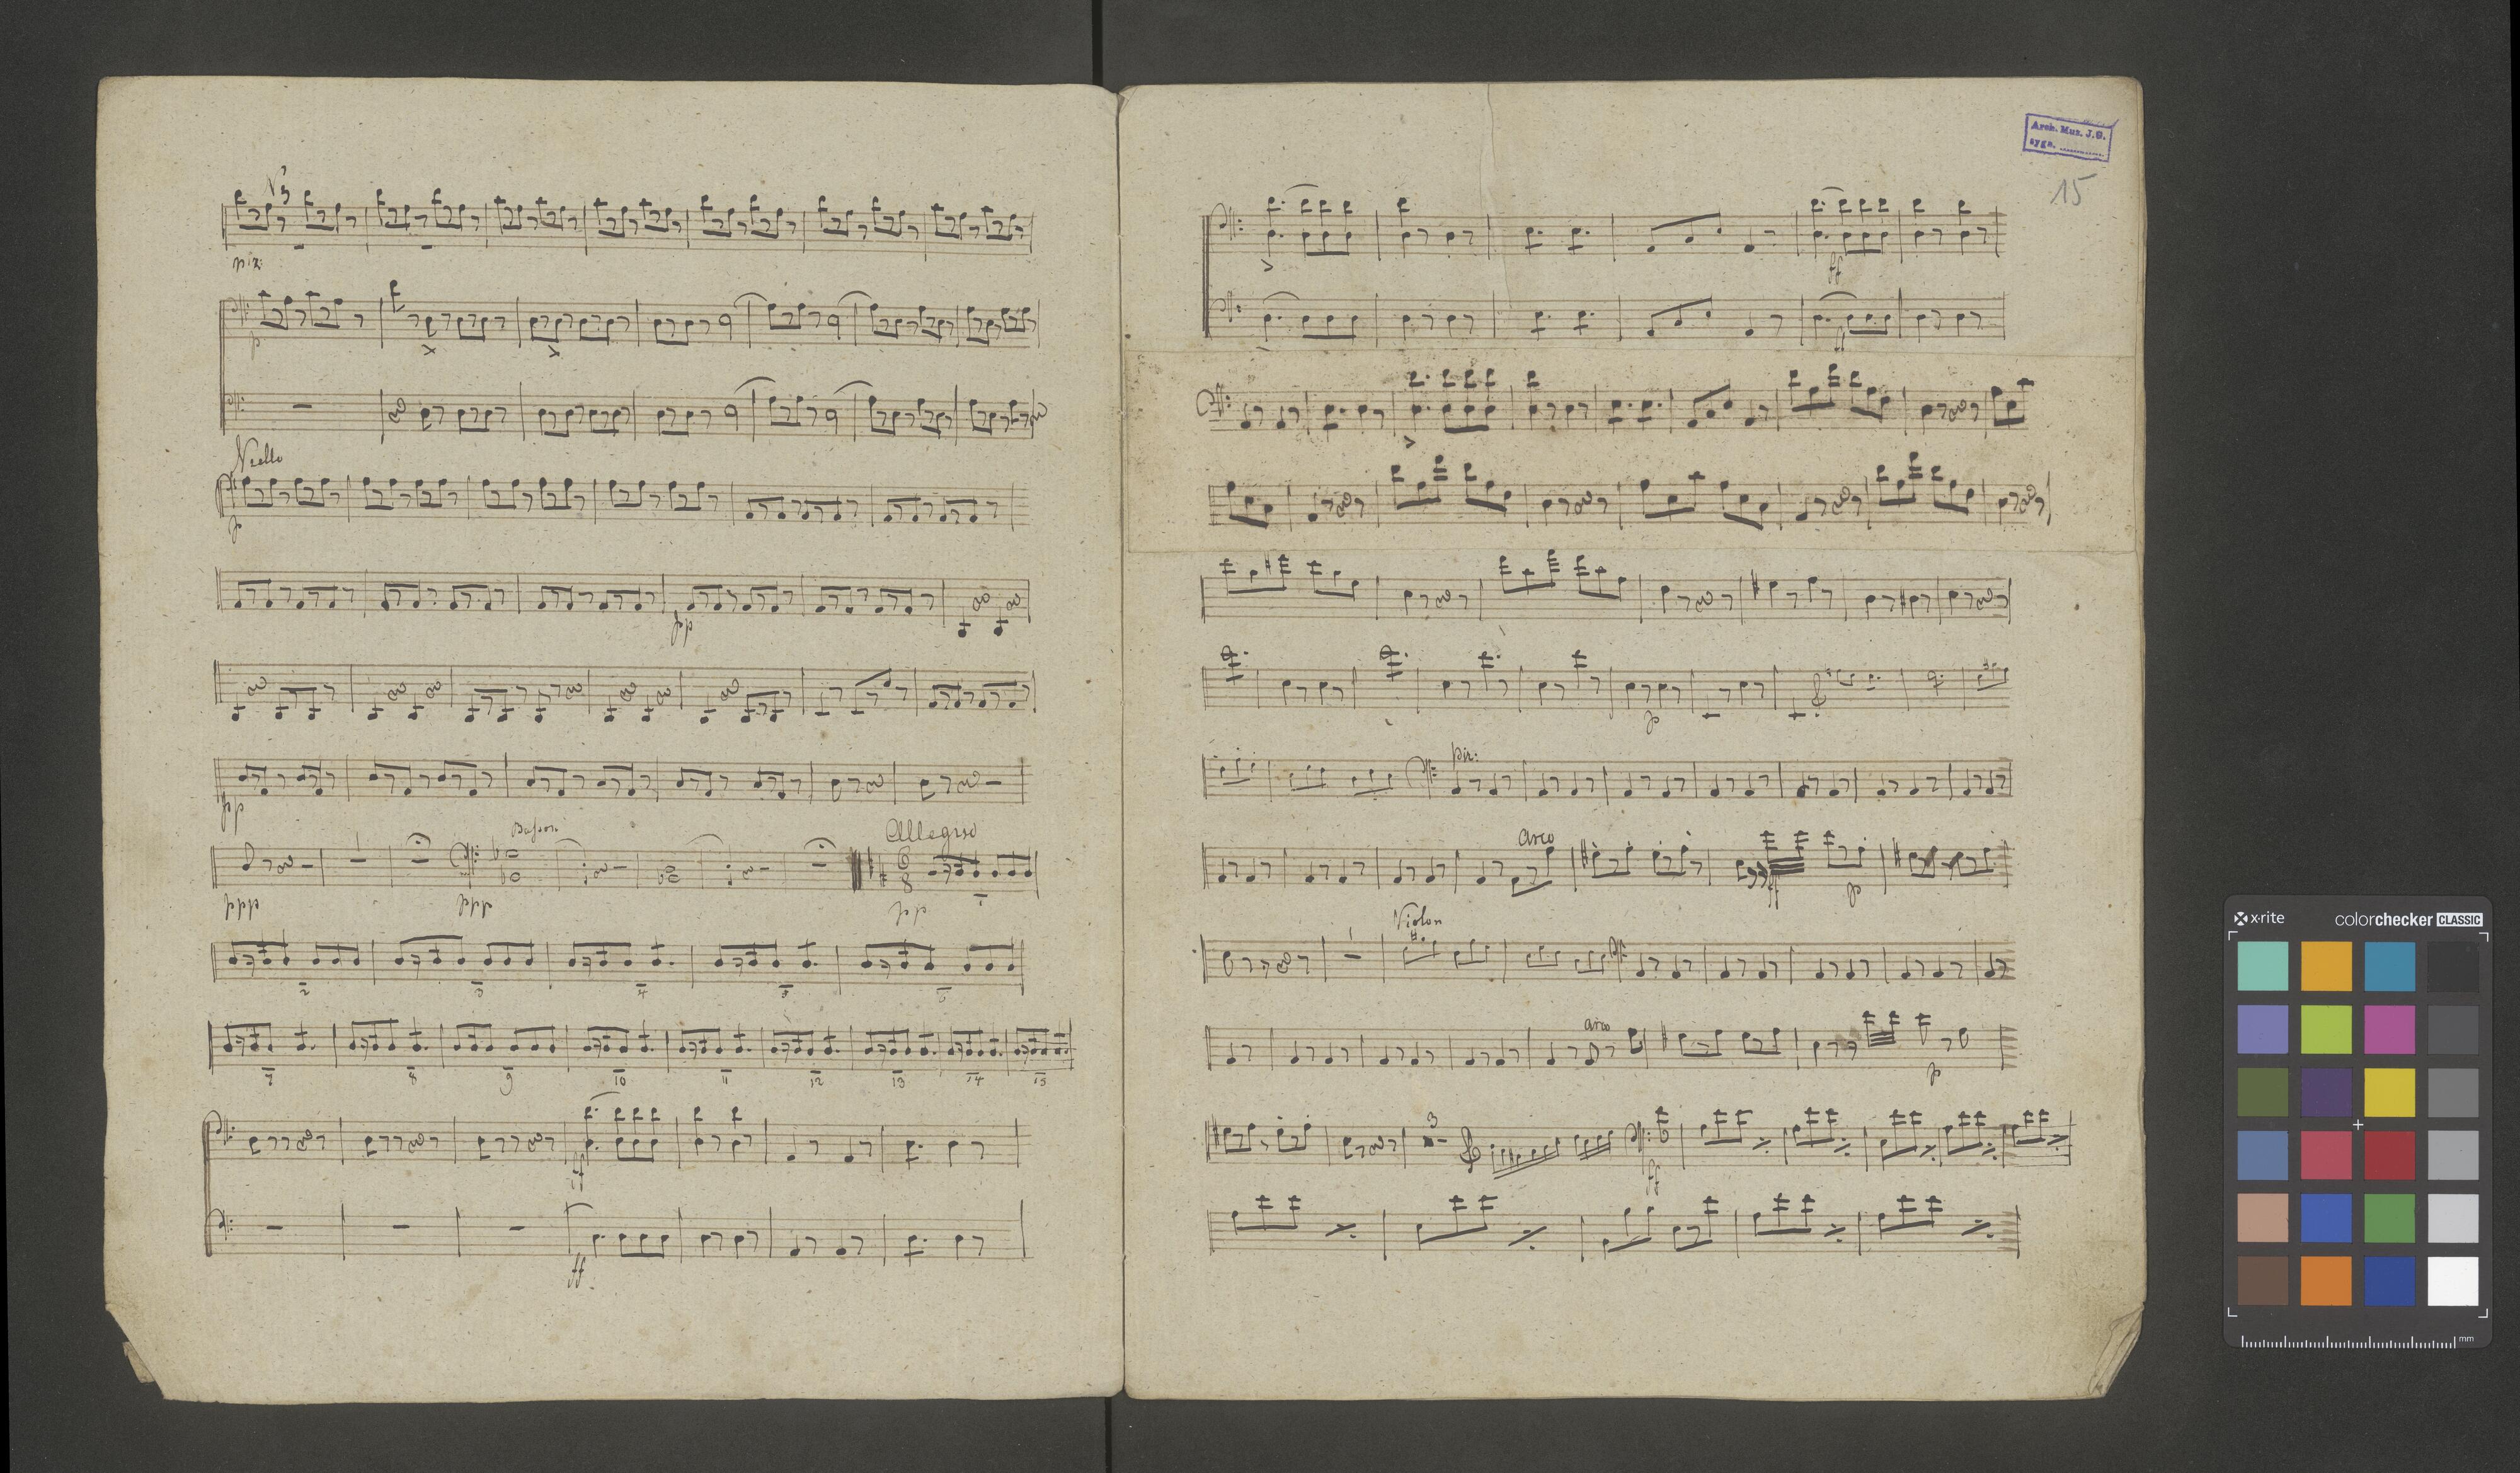 piz:
p
Vcello
p
pp
pp
Basson
Allegro
6
8
ppp
ppp
pp
2 3 4 5 6
7 8 9 10 11 12 13 14 15
ff
ff
Arch. Muz. J.G.
sygn. ..............
15
ff
p
piz:
arco
ff
p
Violon
arco
p
3
ff
x·rite
colorchecker CLASSIC
mm